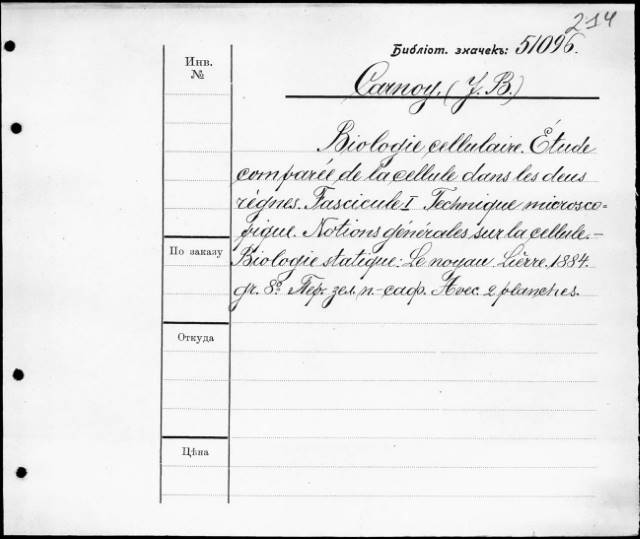 214
Библіот. значекъ: 51096.
Инв.
№
Carnoy, (J. B.)
Biologie cellulaire. Étude
comparée de la cellule dans les deux
règnes. Fascicule I Technique microsco-
pique. Notions générales sur la cellule.-
По заказу
Biologie statique: Le noyau. Lierre, 1884.
gr. 8º. Пер. зел. п.-саф. Avec 2 planches.
Откуда
Цѣна